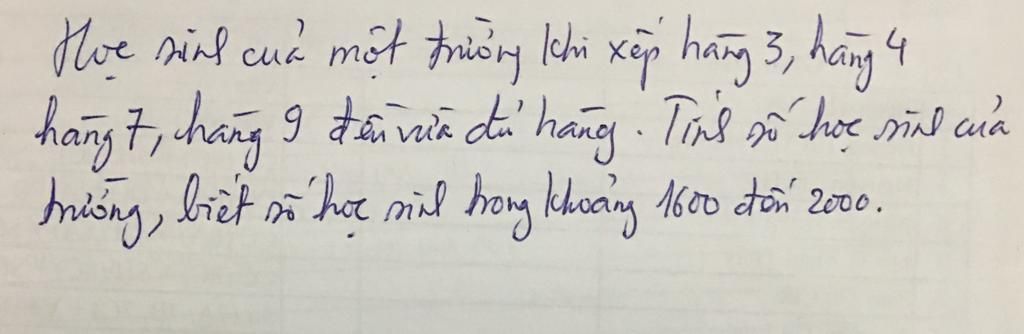 Học sinh của một trường khi xếp hàng 3, hàng 4
hàng 7, hàng 9 đều vừa đủ hàng. Tính số học sinh của
trường, biết số học sinh trong khoảng 1600 đến 2000.